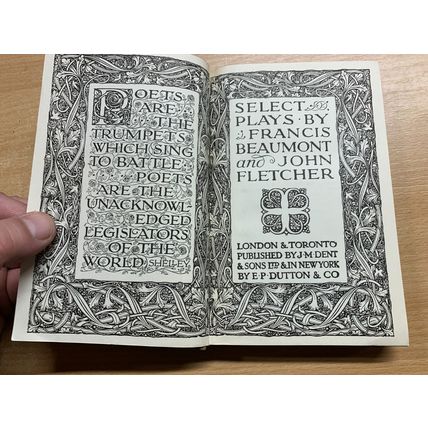 POETS
ARE
THE
TRUMPETS
WHICH SING
TO BATTLE
POETS
ARE THE
UNACKNOWL
EDGED
LEGISLATORS
OF THE
WORLD SHELLEY
SELECT
PLAYS · BY
FRANCIS
BEAUMONT
and JOHN
FLETCHER
LONDON & TORONTO
PUBLISHED BY J · M · DENT
& SONS LTD & IN NEW YORK
BY E · P · DUTTON & CO